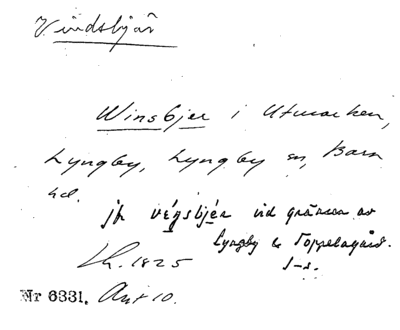 Vindsbjär
Winsbjer i Utmarken,
Lyngby, Lyngby sn, Bara
hd.
jfr végsbjér vid gränsen av
Lyngby & Toppelagård.
Lh. 1825
Nr 6331. Avt 10.